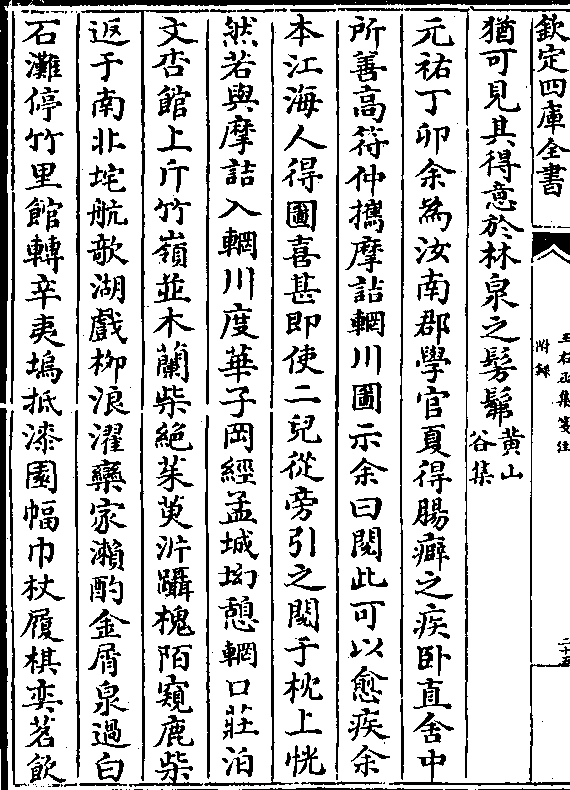 欽定四庫全書
王右丞集箋注
附錄
二十五
猶可見其得意於林泉之髣髴黃山谷集
元祐丁卯余為汝南郡學官夏得腸癖之疾卧直舍中
所善高符仲攜摩詰輞川圖示余曰閱此可以愈疾余
本江海人得圖喜甚即使二兒從旁引之閱于枕上恍
然若與摩詰入輞川度華子岡經孟城坳憩輞口莊泊
文杏館上斤竹嶺並木蘭柴絕茱萸沜躡槐陌窺鹿柴
返于南北垞航欹湖戲柳浪濯欒家瀨酌金屑泉過白
石灘停竹里館轉辛夷塢抵漆園幅巾杖履棋奕茗飲